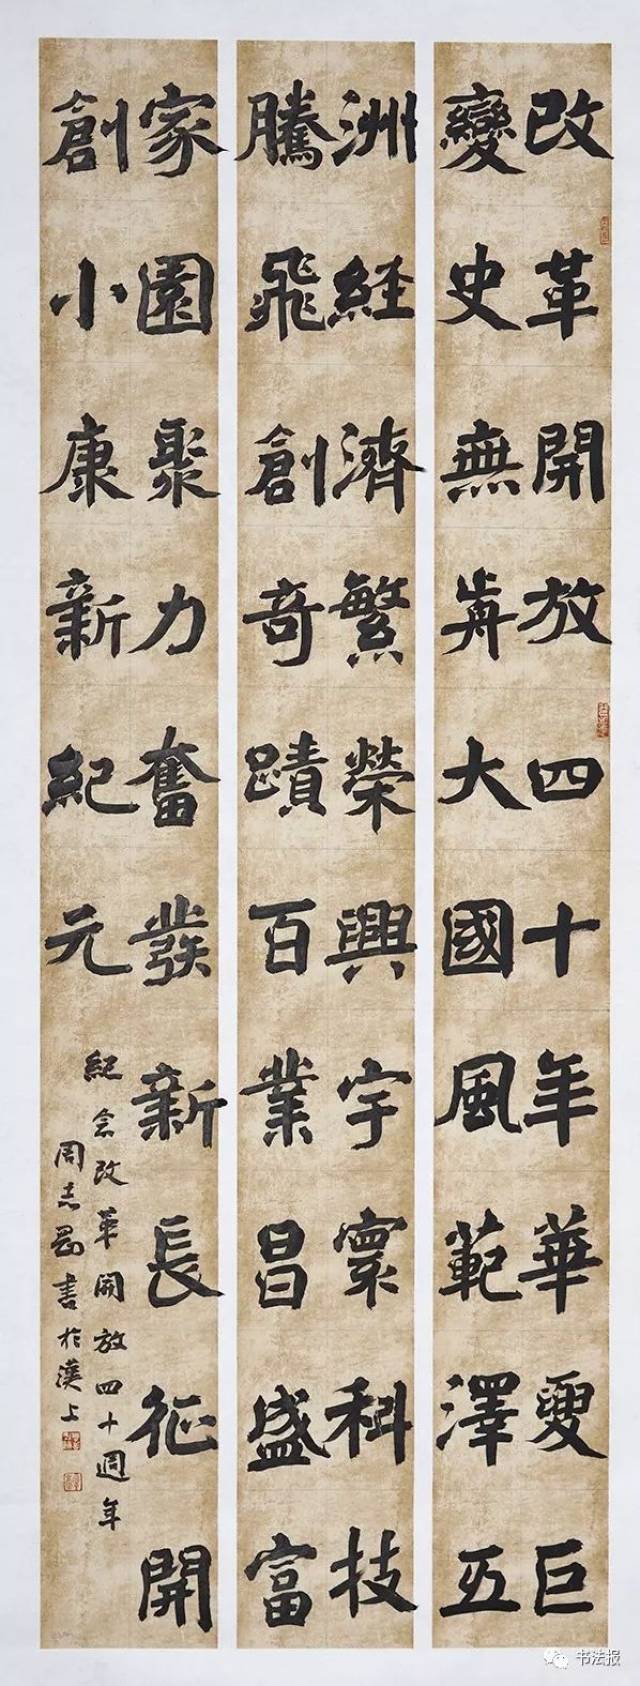 改革開放四十年華夏巨
變史無歬大國風範澤五
洲経濟繁榮興宇寰科技
騰飛創奇蹟百業昌盛富
家園聚力奮發新長征開
創小康新紀元
紀念改革開放四十週年
周志剛書於漢上
书法报